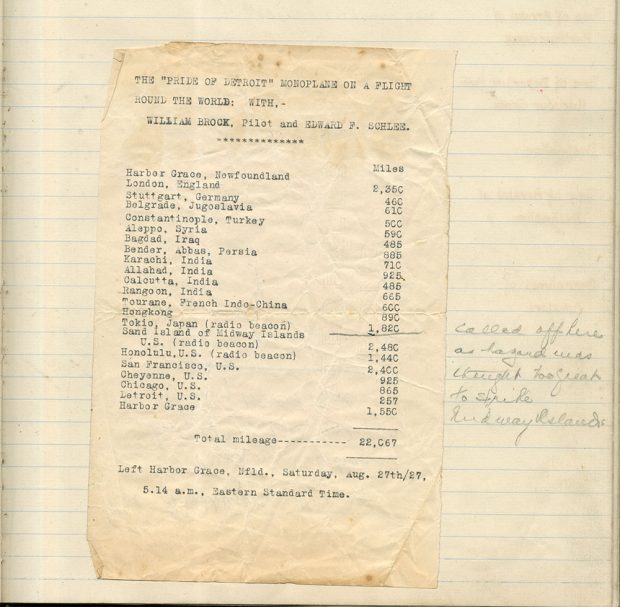 THE "PRIDE OF DETROIT" MONOPLANE ON A FLIGHT
ROUND THE WORLD: WITH,-
WILLIAM BROCK, Pilot and EDWARD F. SCHLEE.
**************
Miles
Harbor Grace, Newfoundland
London, England 2,350
Stuttgart, Germany 460
Belgrade, Jugoslavia 610
Constantinople, Turkey 500
Aleppo, Syria 590
Bagdad, Iraq 485
Bender, Abbas, Persia 885
Karachi, India 710
Allahad, India 925
Calcutta, India 485
Rangoon, India 665
Tourane, French Indo-China 600
Hongkong 890
Tokio, Japan (radio beacon) 1,820
Sand Island of Midway Islands
U.S. (radio beacon) 2,480
Honolulu,U.S. (radio beacon) 1,440
San Francisco, U.S. 2,400
Cheyenne, U.S. 925
Chicago, U.S. 865
Detroit, U.S. 257
Harbor Grace 1,550
Total mileage----------- 22,067
Left Harbor Grace, Nfld., Saturday, Aug. 27th/27,
5.14 a.m., Eastern Standard Time.
called off here
as hazard was
thought too great
to strike
Midway Islands